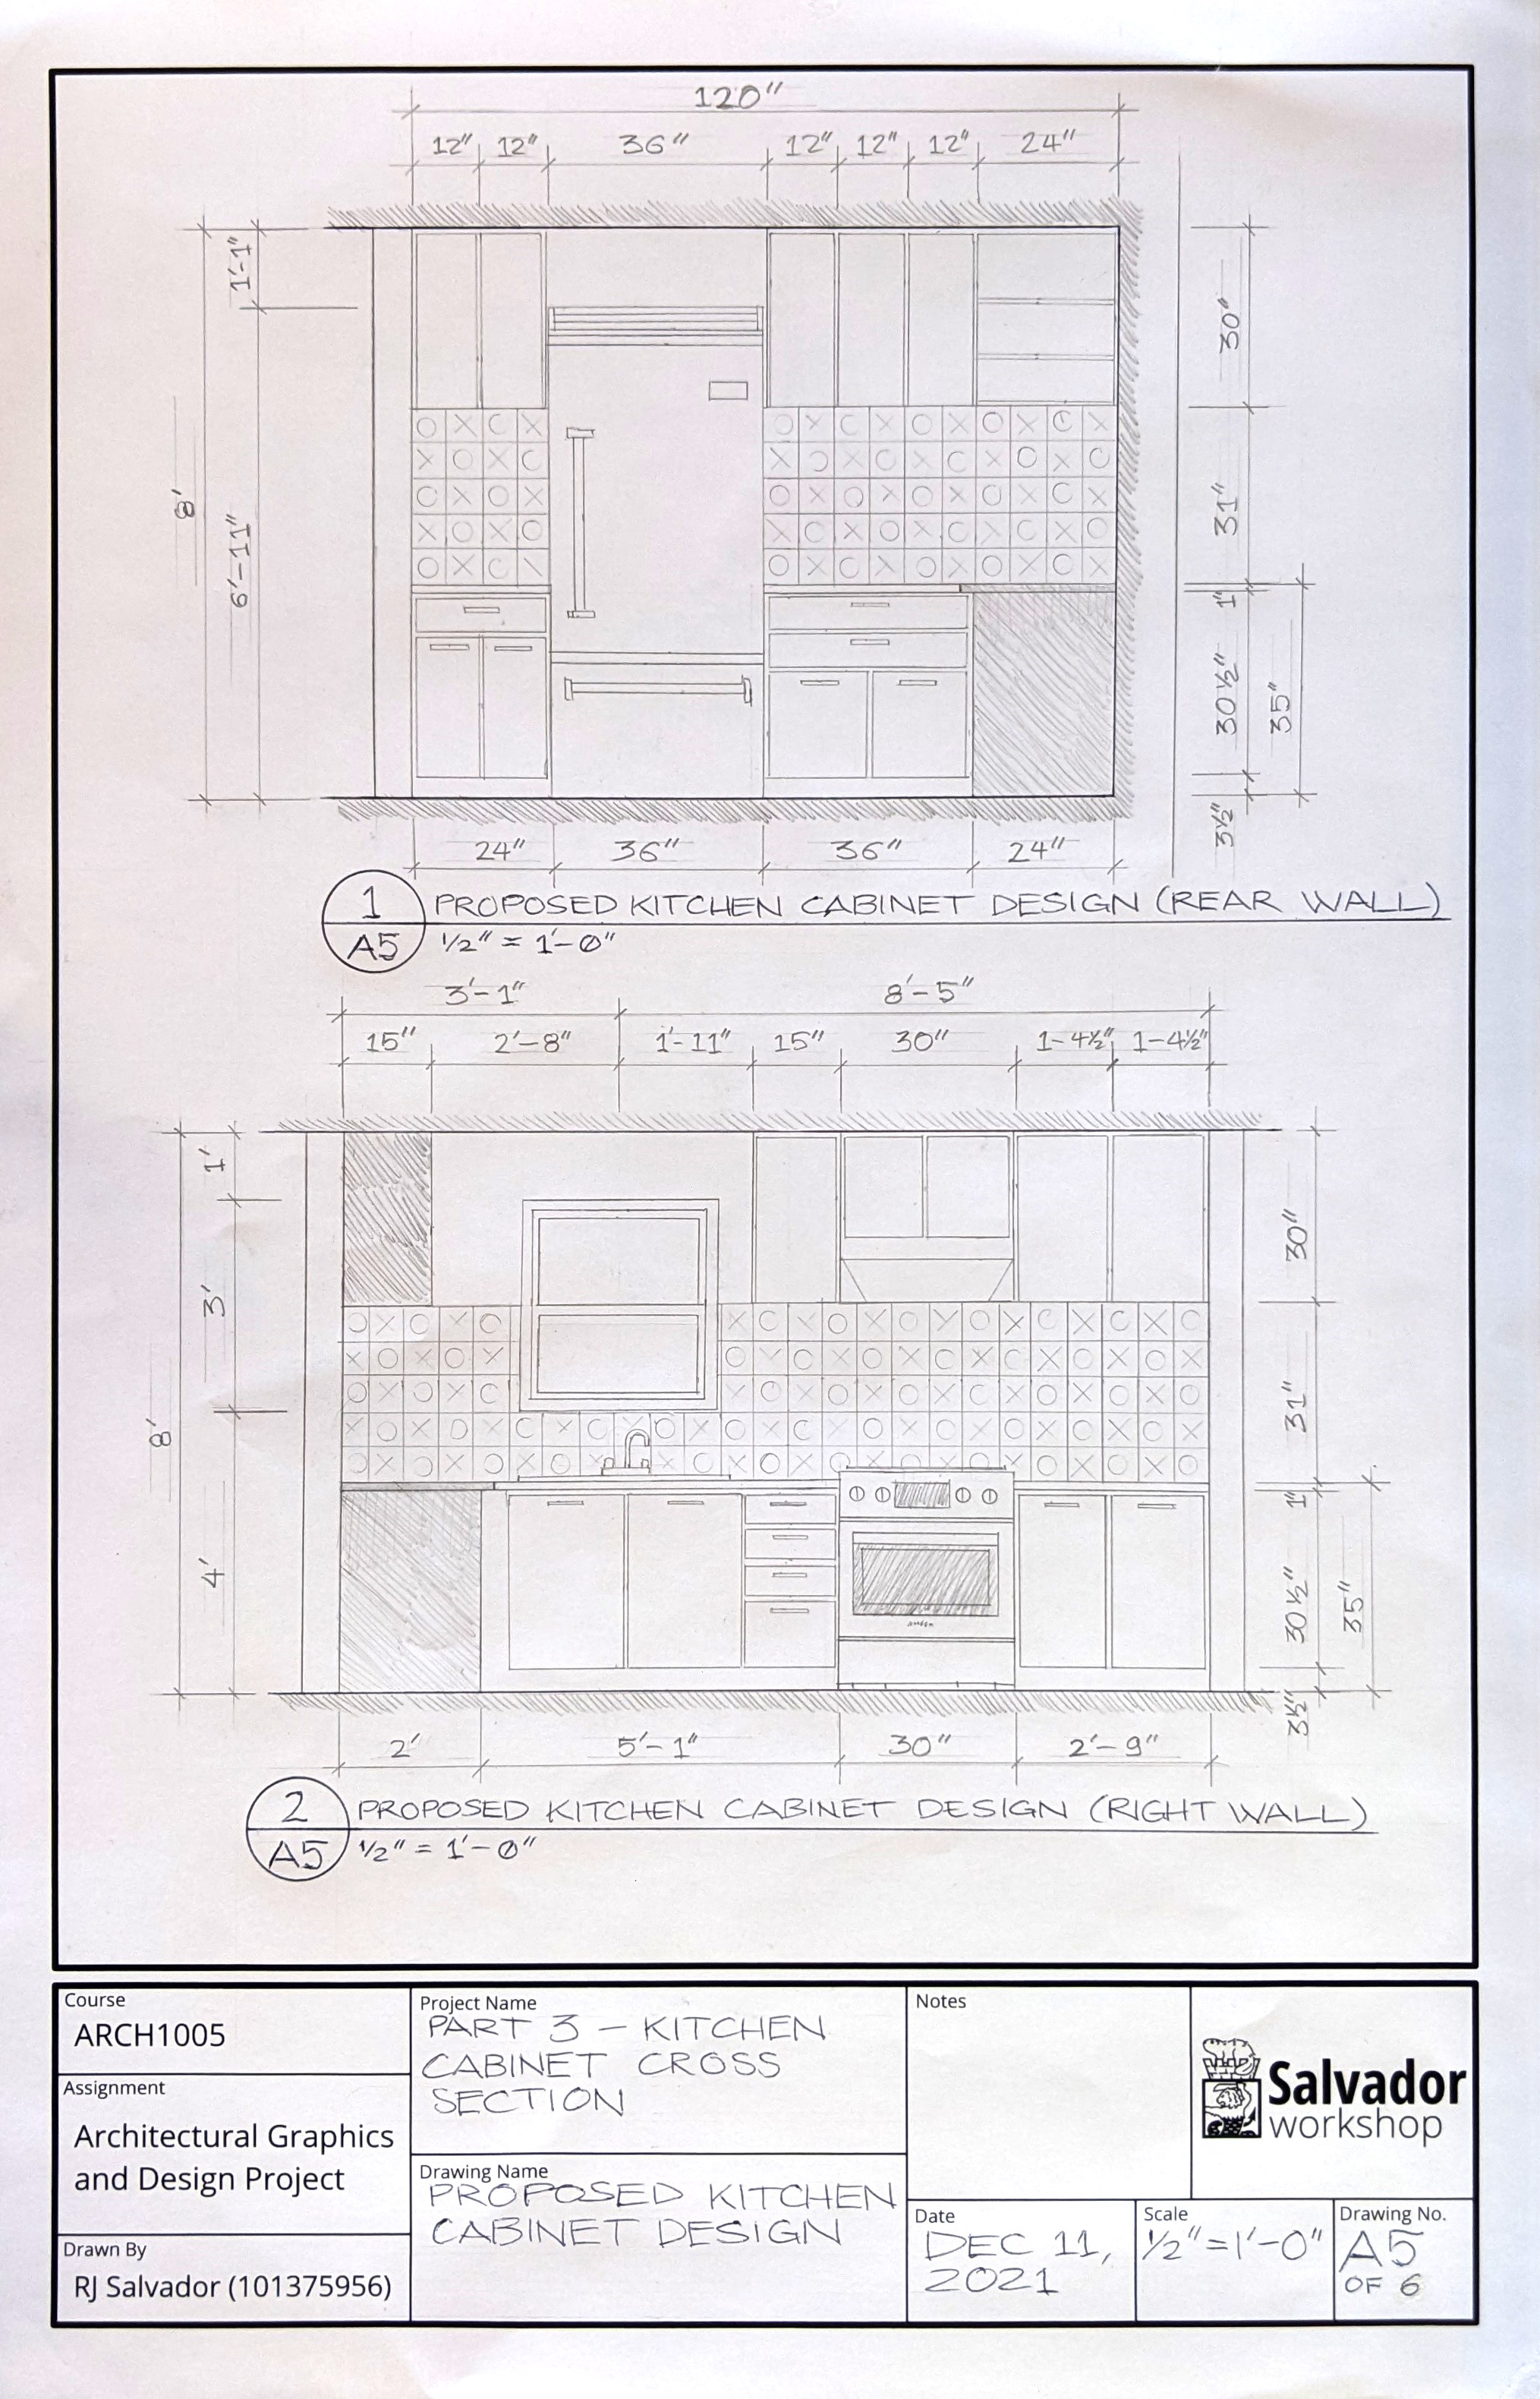 120"
12" 12" 36" 12" 12" 12" 24"
1'-1"
6'-11"
8'
30"
31"
1"
30 ½"
35"
3½"
24" 36" 36" 24"
1
A5
PROPOSED KITCHEN CABINET DESIGN (REAR WALL)
½" = 1'-0"
3'-1" 8'-5"
15" 2'-8" 1'-11" 15" 30" 1-4½" 1-4½"
1'
3'
4'
8'
30"
31"
1"
30 ½"
35"
3½"
2' 5'-1" 30" 2'-9"
2
A5
PROPOSED KITCHEN CABINET DESIGN (RIGHT WALL)
½" = 1'-0"
Course
ARCH1005
Assignment
Architectural Graphics
and Design Project
Drawn By
RJ Salvador (101375956)
Project Name
PART 3 - KITCHEN
CABINET CROSS
SECTION
Drawing Name
PROPOSED KITCHEN
CABINET DESIGN
Notes
Salvador
workshop
Date
DEC 11,
2021
Scale
½"=1'-0"
Drawing No.
A5
OF 6